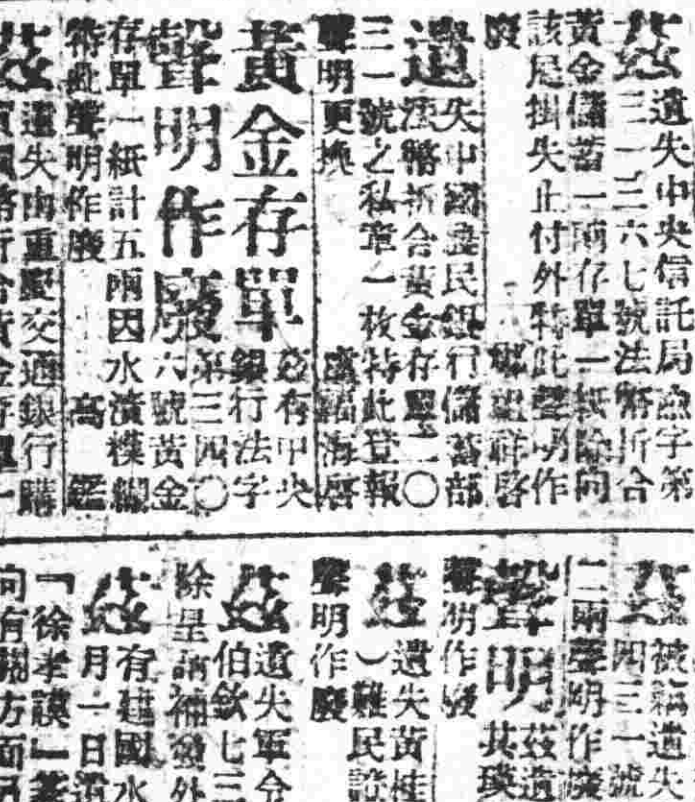 茲遺失中央信託局
三一三六七號法幣折合
黃金儲蓄一兩存單一紙除向
該局掛失止付外特此聲明作
廢 祥啓
遺失中國農民銀行儲蓄部
法幣折合黃金存單二〇
三一號之私章一枚特此登報
聲明更換 福海啓
黃金存單
聲明作廢
茲有中央
銀行法字
第三四〇
六號黃金
存單一紙計五兩因水漬模糊
特此聲明作廢 高鑑
茲遺失由重慶交通銀行購
茲被竊遺失
四三一號
二兩聲明作廢
聲明茲遺
其瑛
聲明作廢
茲遺失黃桂
)難民證
聲明作廢
茲遺失軍令
伯欽七三
除呈請補發外
茲有建國水
月一日遺
「徐孝謨」
向有關方面